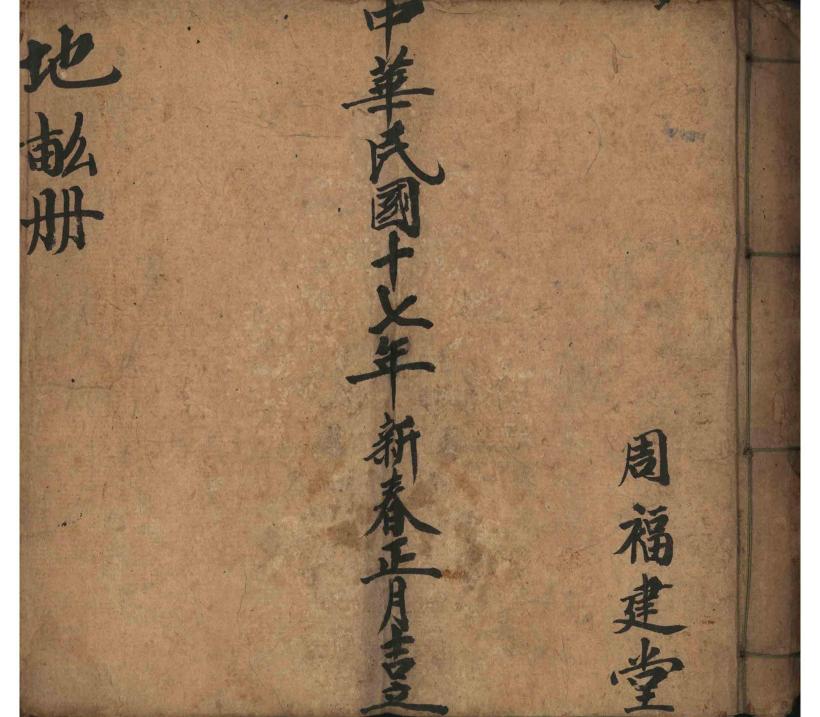 周福建堂
中華民國十七年新春正月吉立
地畝册